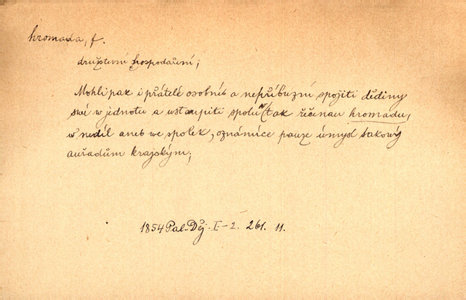 hromada, f.
družstevní hospodaření;
Mohli pak i přátelé osobně a nepříbuzní spojiti dědiny
své v jednotu a wstaupiti spolu w tak řečenau hromadu,
w nedíl aneb we spolek, oznámíce pauze úmysl takový
auřadům krajským;
1854 Pal. Děj. I-2. 261. 11.